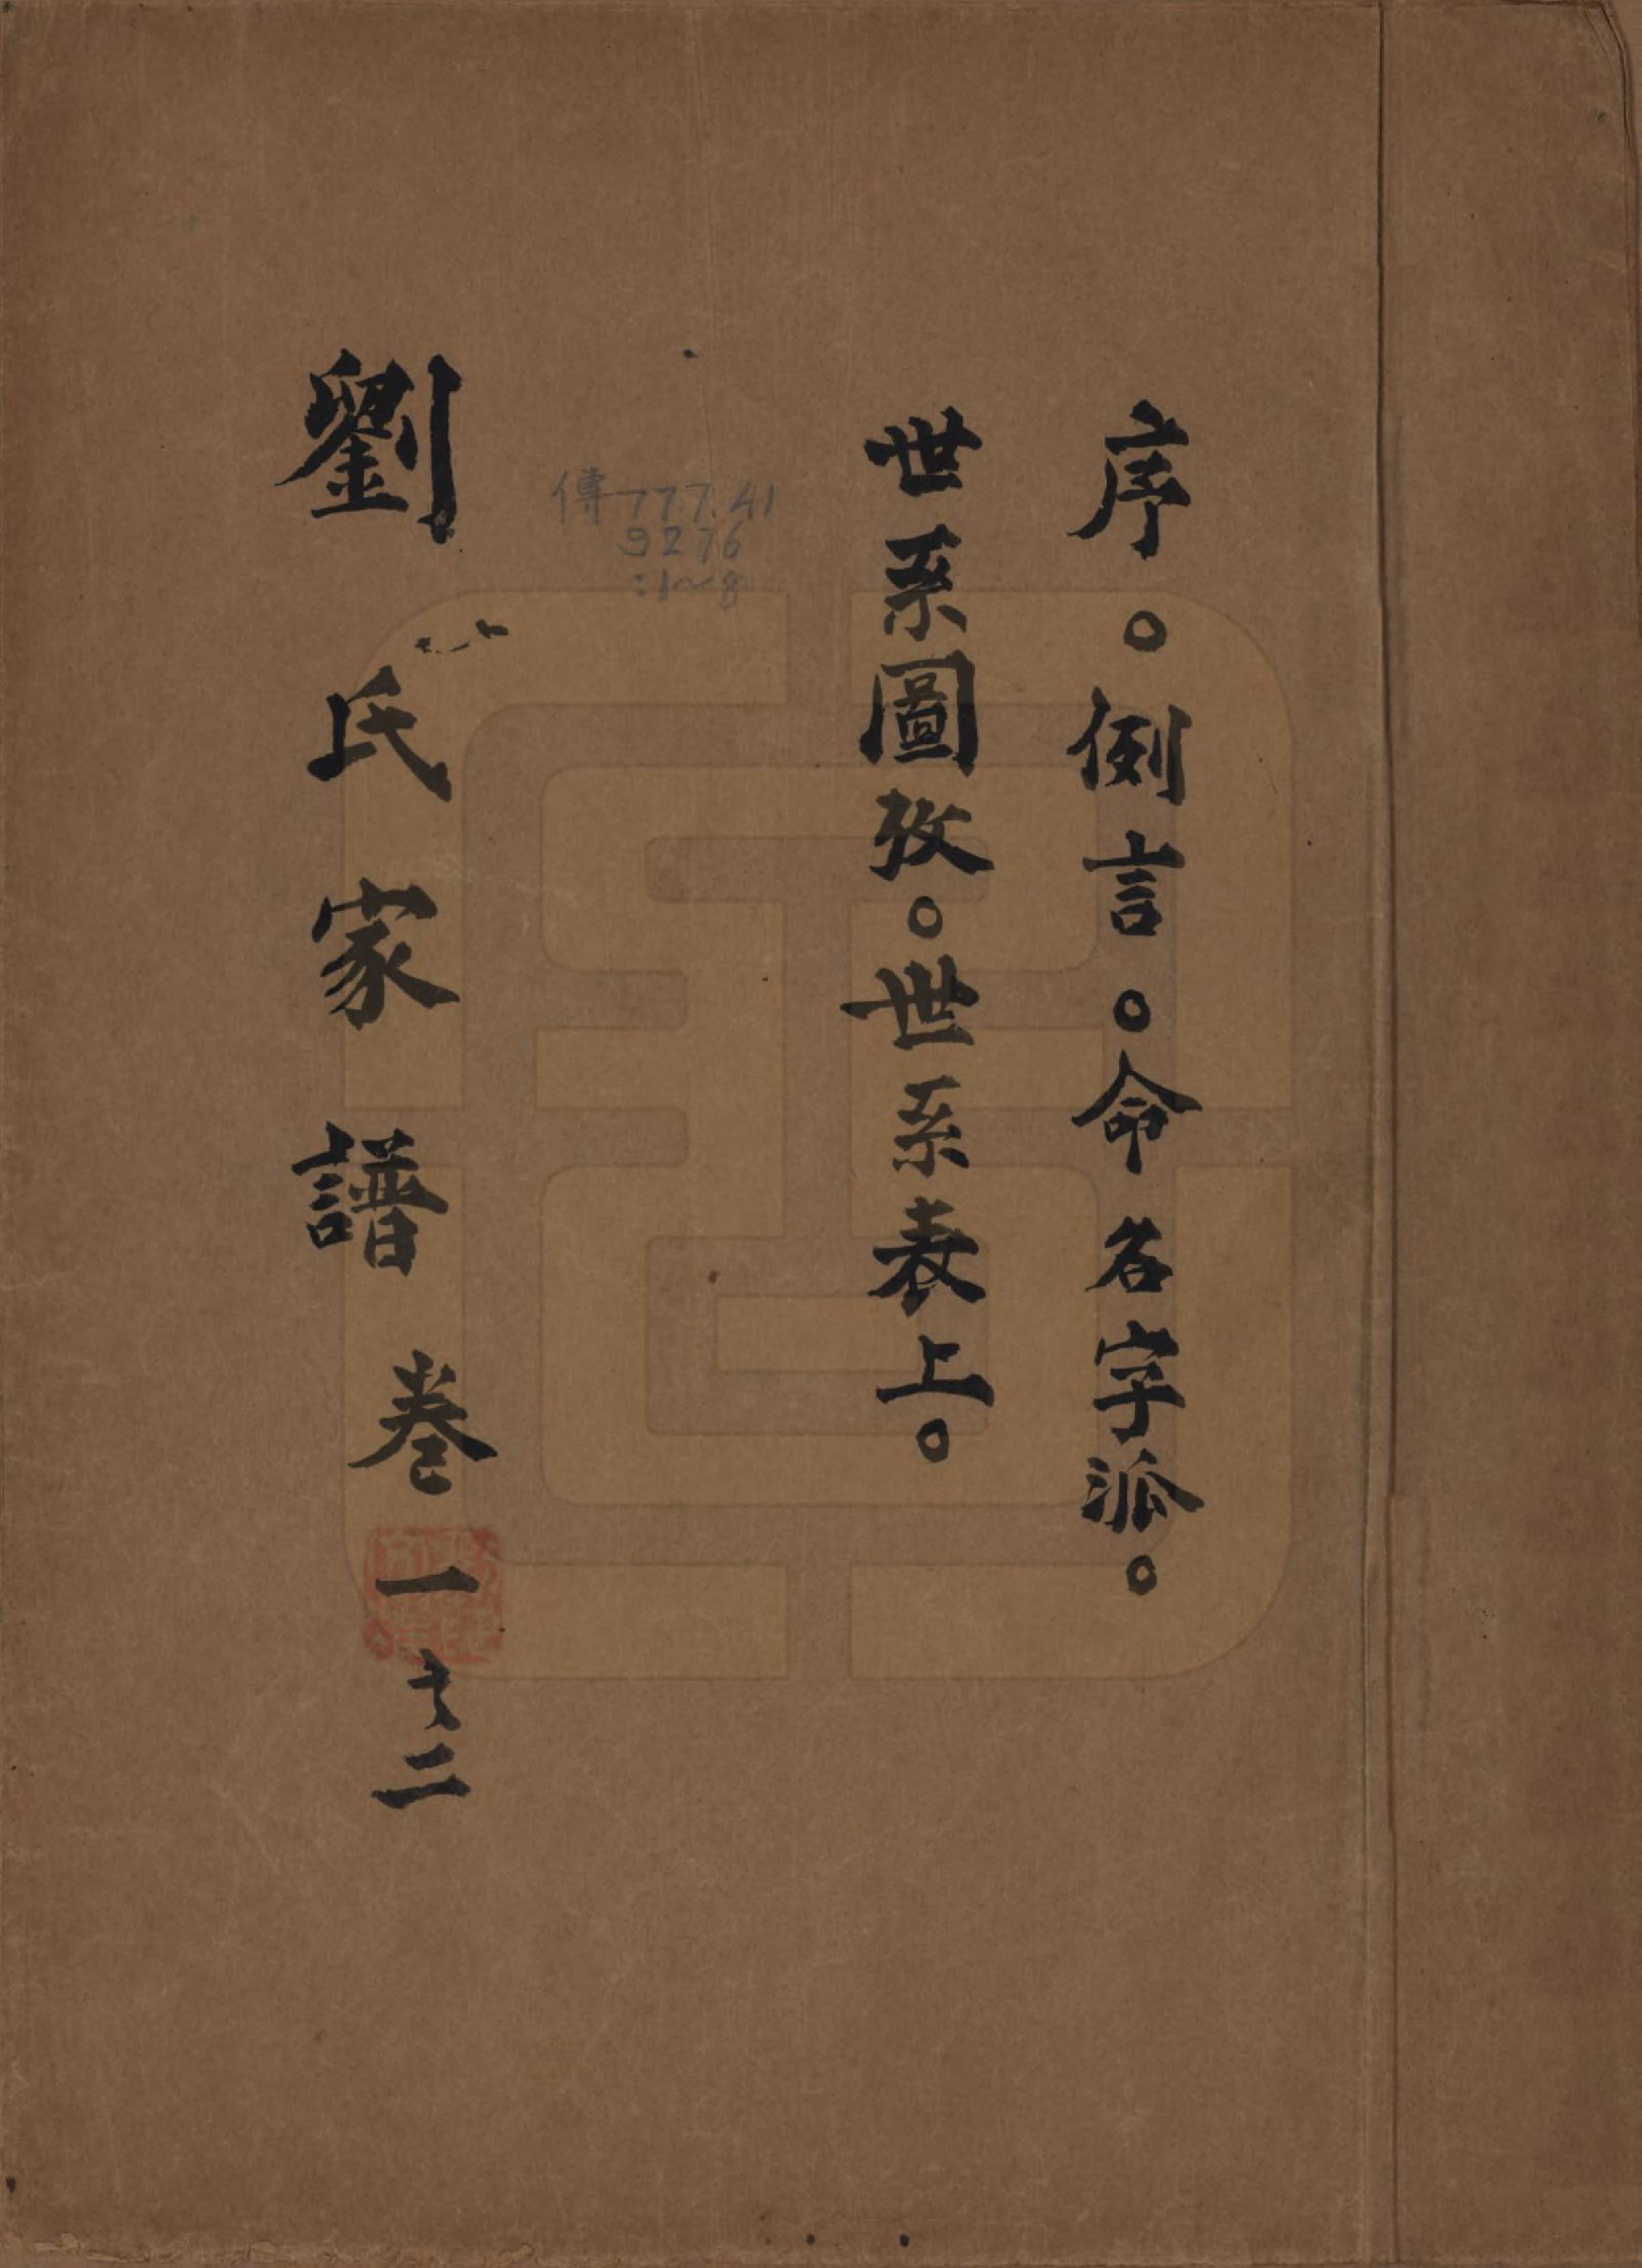 序。例言。命名字派。
世系圖攷。世系表上。
傳777.41
9276
:1~8
劉氏家譜 卷一之二